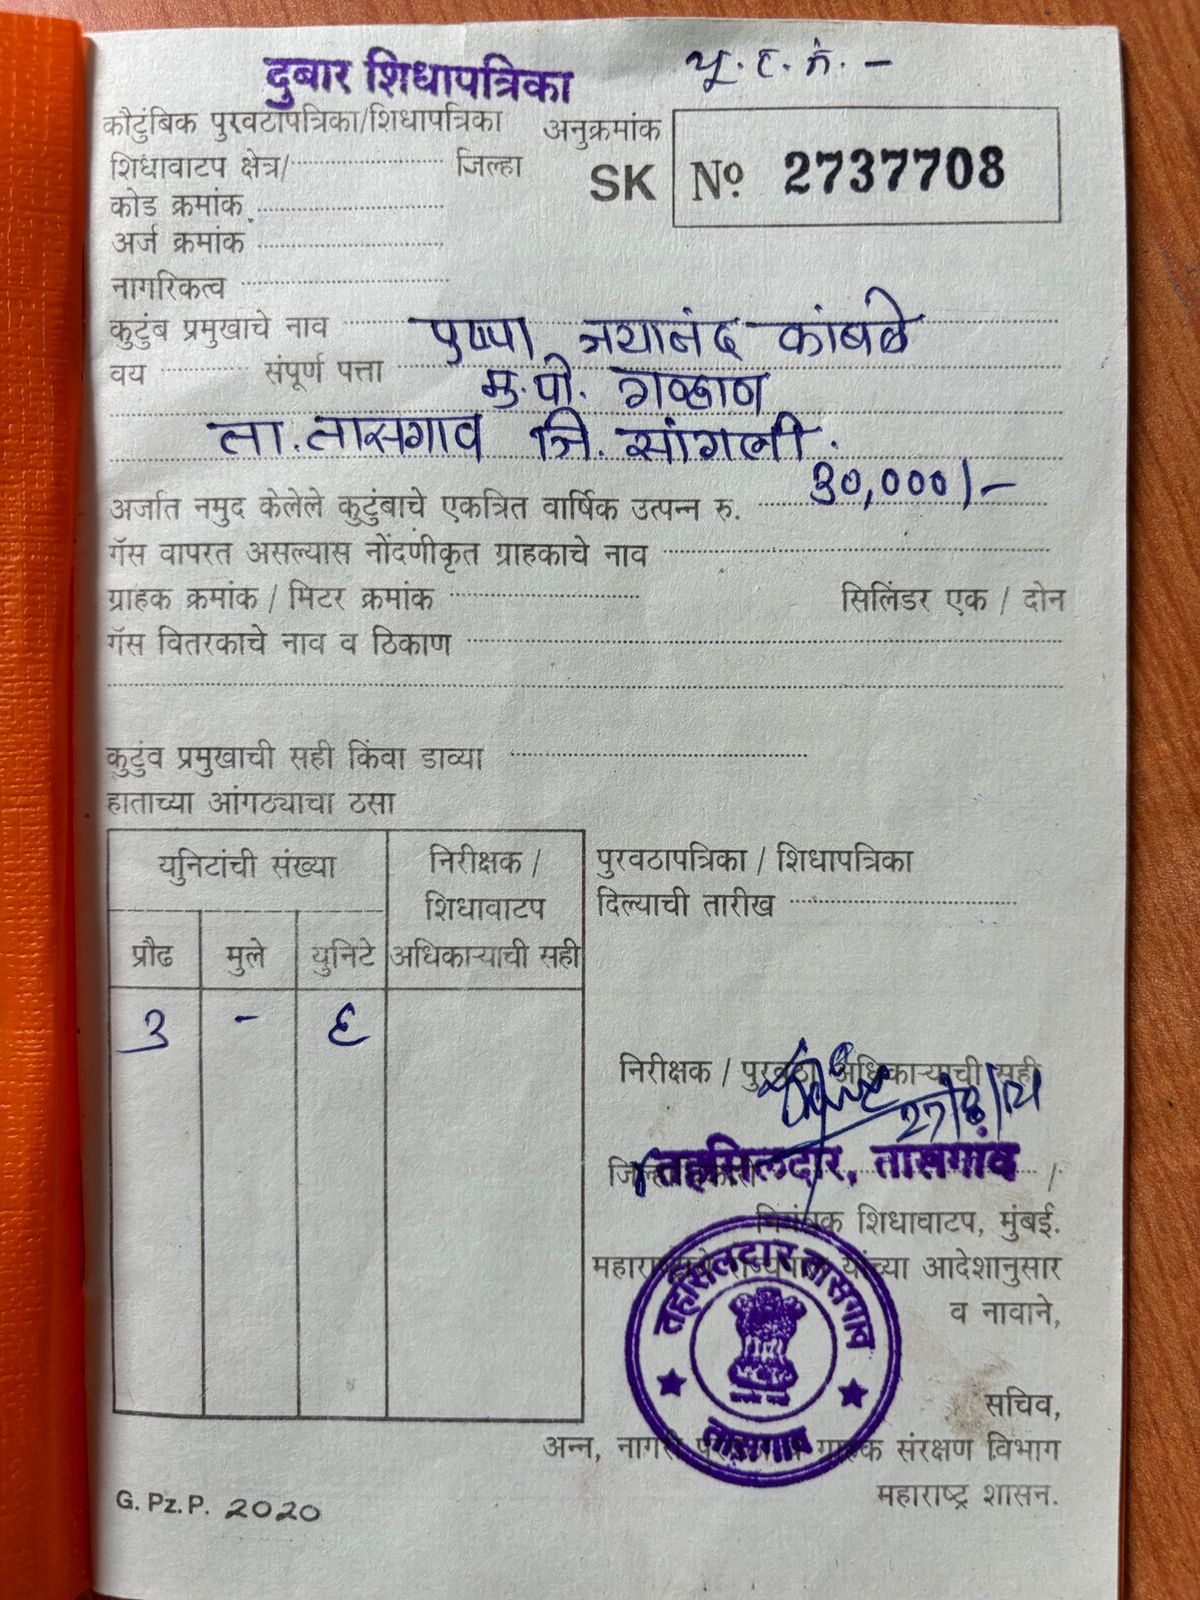 दुबार शिधापत्रिका
कौटुंबिक पुरवठापत्रिका/शिधापत्रिका अनुक्रमांक
SK Nº 2737708
शिधावाटप क्षेत्र/ जिल्हा
कोड क्रमांक
अर्ज क्रमांक
नागरिकत्व
कुटुंब प्रमुखाचे नाव पुष्पा कांबळे
वय संपूर्ण पत्ता मु.पो. गव्हाण
ता.तासगाव जि.सांगली.
अर्जात नमुद केलेले कुटुंबाचे एकत्रित वार्षिक उत्पन्न रु. 30,000/-
गॅस वापरत असल्यास नोंदणीकृत ग्राहकाचे नाव
ग्राहक क्रमांक / मिटर क्रमांक सिलिंडर एक / दोन
गॅस वितरकाचे नाव व ठिकाण
कुटुंव प्रमुखाची सही किंवा डाव्या
हाताच्या आंगठ्याचा ठसा
युनिटांची संख्या
निरीक्षक /
शिधावाटप
अधिकाऱ्याची सही
प्रौढ मुले युनिटे
३ - ६
पुरवठापत्रिका / शिधापत्रिका
दिल्याची तारीख
निरीक्षक / पुरवठा अधिकाऱ्याची सही
तहसिलदार, तासगांव
शिधावाटप, मुंबई.
यांच्या आदेशानुसार
व नावाने,
तहसिलदार तासगाव
तासगाव
सचिव,
अन्न, ग्राहक संरक्षण विभाग
महाराष्ट्र शासन.
G. Pz. P. 2020